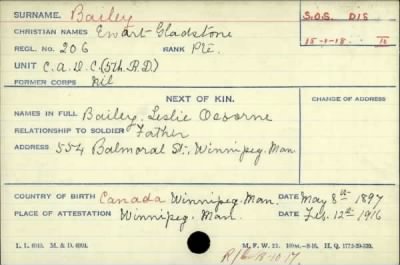 SURNAME. Bailey S.O.S. DIS
CHRISTIAN NAMES Ewart Gladstone 15-1-18. 10
REGL. NO. 206 RANK Pte.
UNIT C.A.D.C. (5th. R.D.)
FORMER CORPS Nil
NEXT OF KIN. CHANGE OF ADDRESS
NAMES IN FULL Bailey, Leslie Osborne
RELATIONSHIP TO SOLDIER Father
ADDRESS 554 Balmoral St., Winnipeg. Man
COUNTRY OF BIRTH Canada Winnipeg. Man. DATE May 8th 1897
PLACE OF ATTESTATION Winnipeg. Man. DATE Feb. 12th 1916
M. F. W. 22.